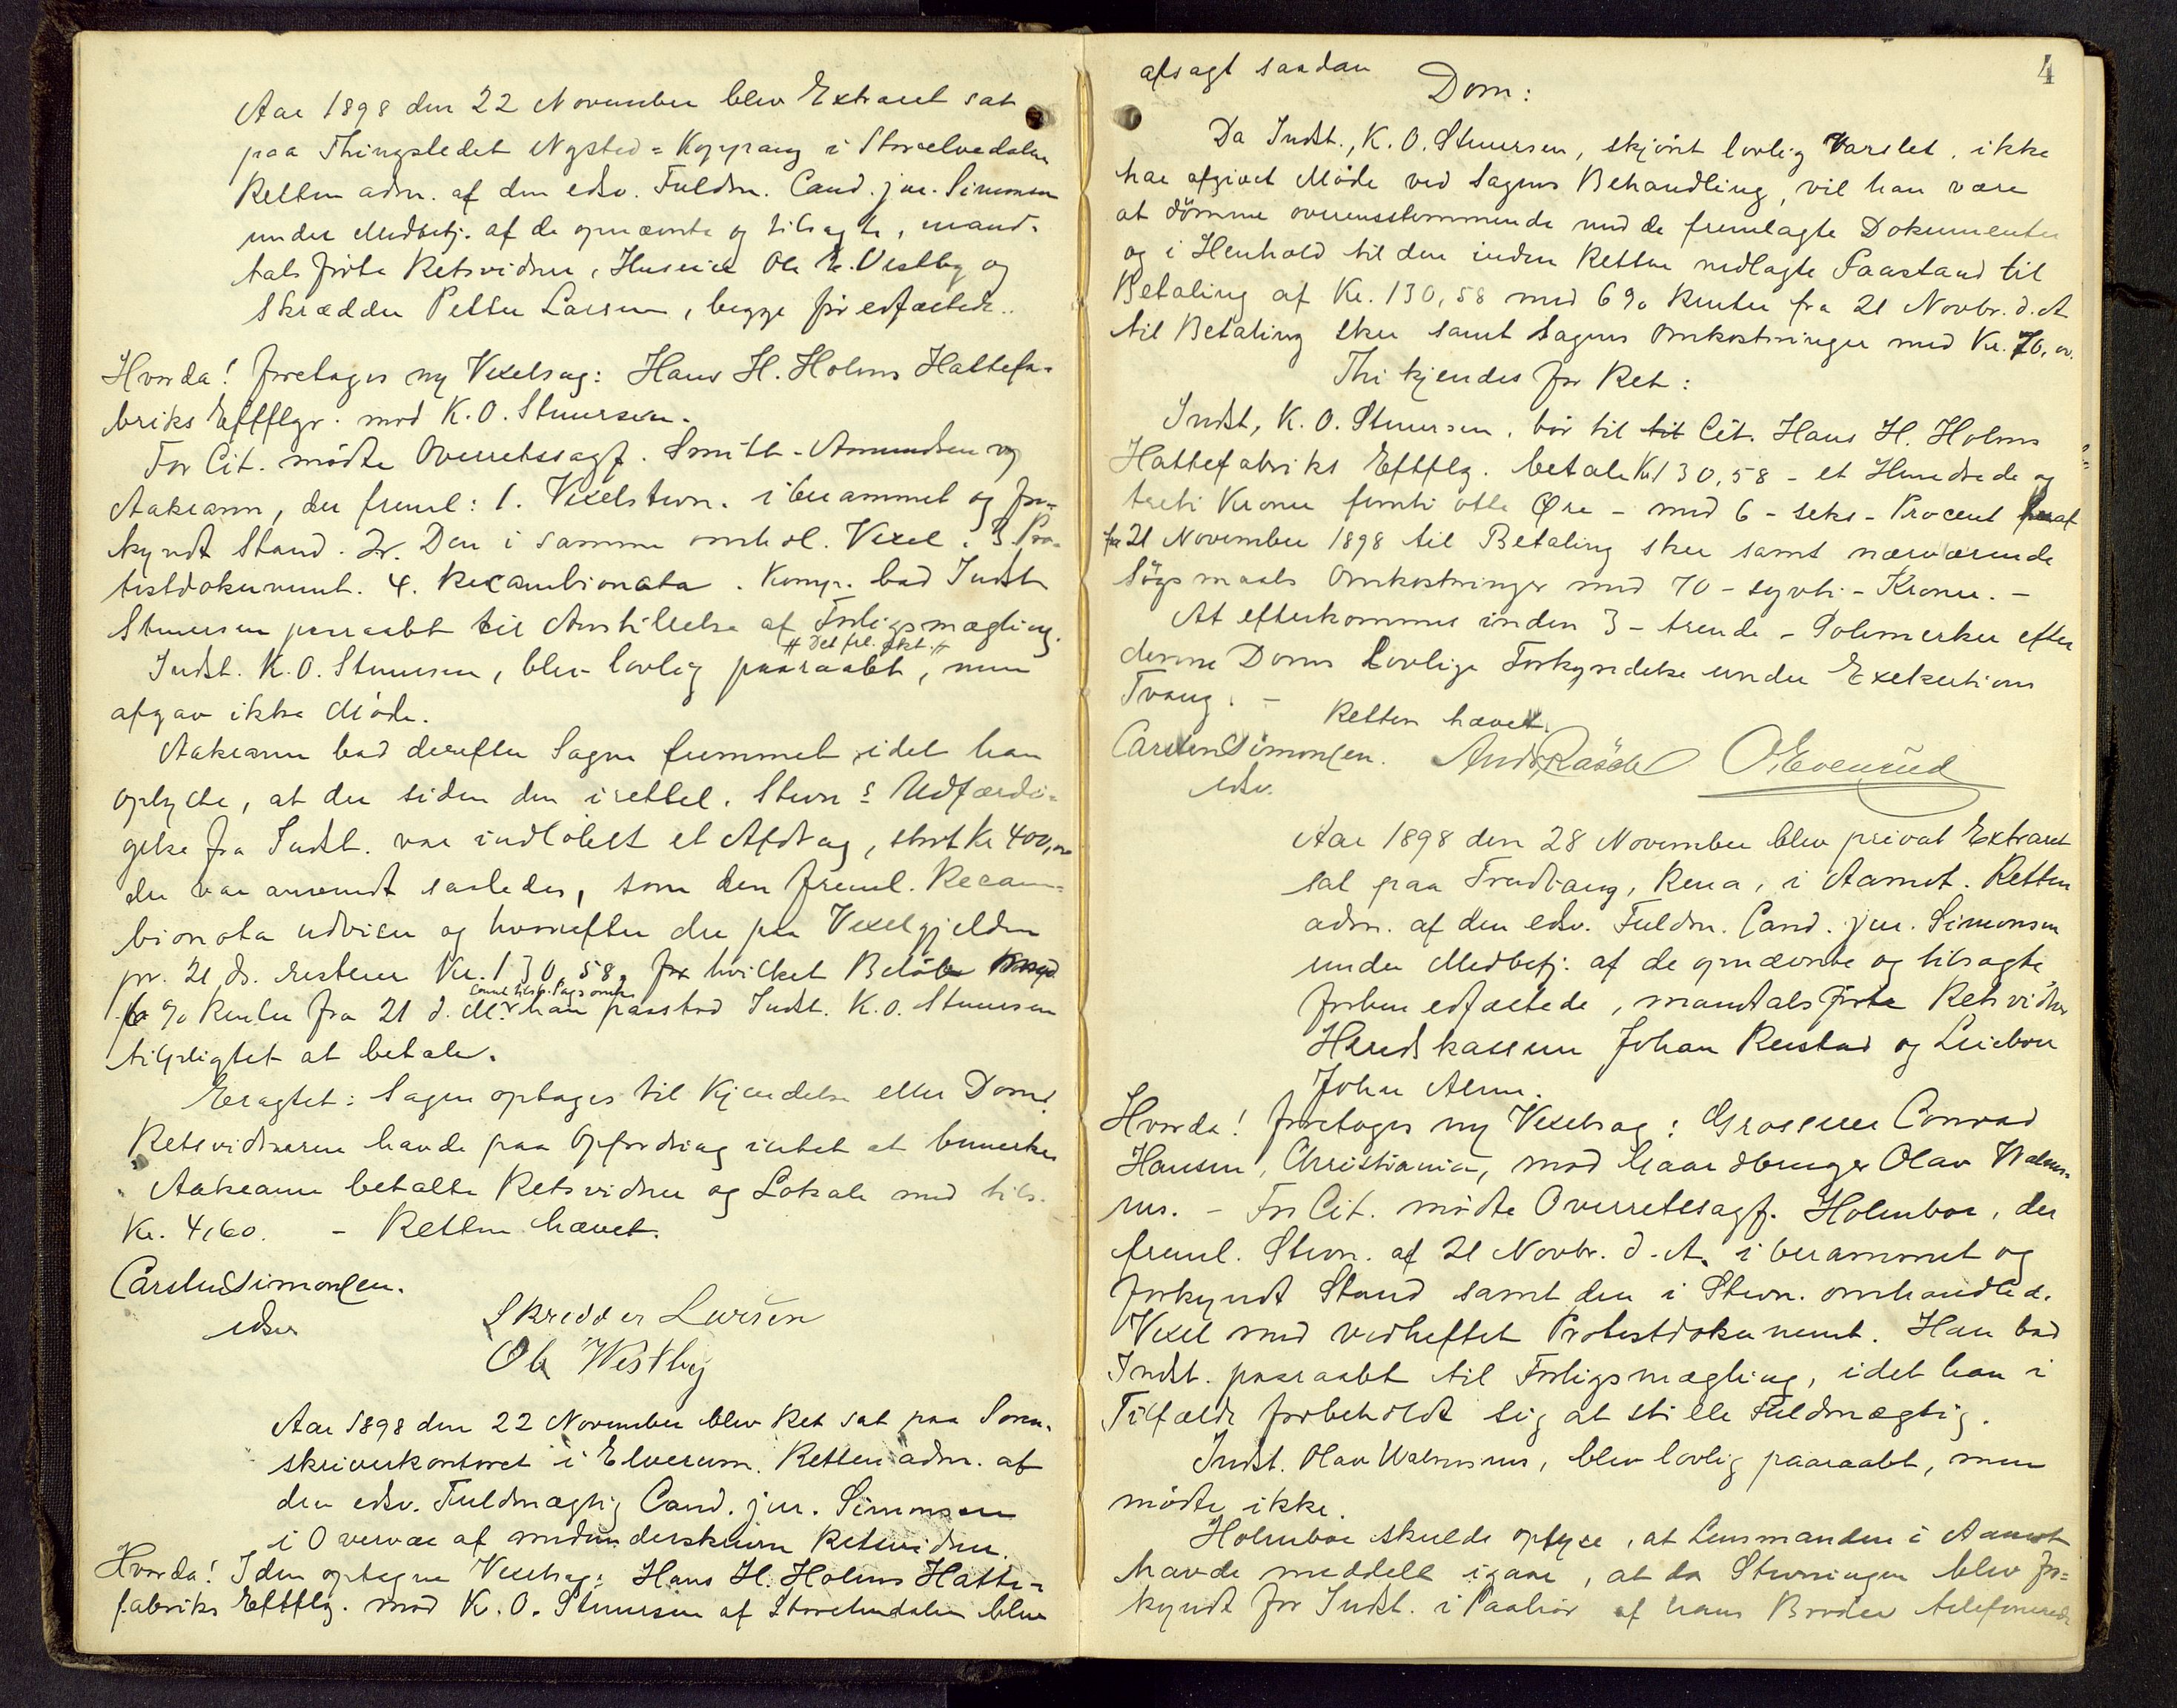 Aar 1898 den 22 November blev Extraret sat
paa Thingstedet Nysted = Koppang i Storelvedalen
Retten adm. af den edsv. Fuldm. Cand. jur. Simonsen
under Medbetj. af de opnævnte og tilsagte, mand-
talsførte Retsvidner, Huseier Ole E. Vestby og
Skrædder Petter Larsen, begge før edfæstede..
Hvorda! foretoges ny Vexelsag: Hans H. Holms Hattefa-
briks Eftflgr. mod K. O. Stuursen.
For Cit. mødte Overretssagf. Smith-Amundsen og
Aakrann, der freml: 1. Vexelstevn. i berammet og for-
kyndt Stand. 2. Den i samme omhdl. Vexel. 3 Pro-
testdokument. 4. Recambionota. Komp. bad Indst.
Stuursen paaraabt til Anstillelse af Forligsmægling.
# Det fel. Akt. #
Indst. K. O. Stuursen, blev lovlig paaraabt, men
afgav ikke Møde.
Aakrann bad derefter Sagen fremmet, idet han
oplyste, at der siden den irettel. Stevns Udfærdi-
gelse fra Indst. var indløbet et Afdrag, stort Kr 400,00
der var anvendt saaledes, som den freml. Recam-
bionota udviser og hvorefter der paa Vexelgjelden
pr. 21 ds. resterer Kr. 130,58, for hvilket Beløb
samt tilsp. Sagsomk.
6 % Renter fra 21 d. M. han paastod Indst. K. O. Stuursen
tilpligtet at betale.
Eragtet: Sagen optages til Kjendelse eller Dom.
Retsvidnerne havde paa Opfordring intet at bemærke
Aakrann betalte Retsvidner og Lokale med tils.
Kr. 4,60. - Retten hævet.
Carsten Simonsen.
edsv
Skredder Larsen
Ole Westby
Aar 1898 den 22 November blev Ret sat paa Soren-
skriverkontoret i Elverum. Retten adm. af
den edsv. Fuldmægtig Cand. jur. Simonsen
i Overvær af medunderskrevne Retsvidner.
Hvorda! I den optagne Vexelsag: Hans H. Holms Hatte-
fabriks Eftflg. mod K. O. Stuursen af Storelvedalen blev
4
afsagt saadan
Dom:
Da Indst., K. O. Stuursen, skjønt lovlig varslet, ikke
har afgivet Møde ved Sagens Behandling, vil han være
at dømme overensstemmende med de fremlagte Dokumenter
og i Henhold til den inden Retten nedlagte Paastand til
Betaling af Kr. 130,58 med 6 % Renter fra 21 Novbr. d. A
til Betaling sker samt Sagens Omkostninger med Kr. 70,00.
Thi kjendes for Ret:
Indst, K. O. Stuursen, bør til til Cit. Hans H. Holms
Hattefabriks Eftflg. betale Kr 130,58 - et Hundrede og
treti Kroner femti otte Øre - med 6 - seks - Procent heraf
fra 21 November 1898 til Betaling sker samt nærværende
Søgsmaals Omkostninger med 70 - sytti - Kroner. -
At efterkommes inden 3 - trende - Solemerker efter
denne Doms Lovlige Forkyndelse under Exekutions
Tvang. -
Retten hævet.
Carsten Simonsen.
edsv.
O. Evenrud
Aar 1898 den 28 November blev privat Extraret
sat paa Trudvang, Rena, i Aamot. Retten
adm. af den edsv. Fuldm. Cand. jur. Simonsen
under Medbetj: af de opnævnte og tilsagte
forhen edfæstede, mandtalsførte Retsvidner
Herredskasserer Johan Renstad og Leiebon
John Alm.
Hvorda! foretoges ny Vexelsag: Grosserer Conrad
Hansen, Christiania, mod Gaardbruger Olav Walms-
nes. - For Cit. mødte Overretssagf. Holmboe, der
freml. Stevn. af 21 Novbr. d. A. i berammet og
forkyndt Stand samt den i Stevn. omhandlede
Vexel med vedheftet Protestdokument. Han bad
Indst. paaraabt til Forligsmægling, idet han i
Tilfælde forbeholdt sig at stille Fuldmægtig.
Indst. Olav Walmsnes, blev lovlig paaraabt, men
mødte ikke.
Holmboe skulde oplyse, at Lensmanden i Aamot
havde meddelt igaar, at da Stevningen blev for-
kyndt for Indst. i Paahør af hans Broder telefonerede